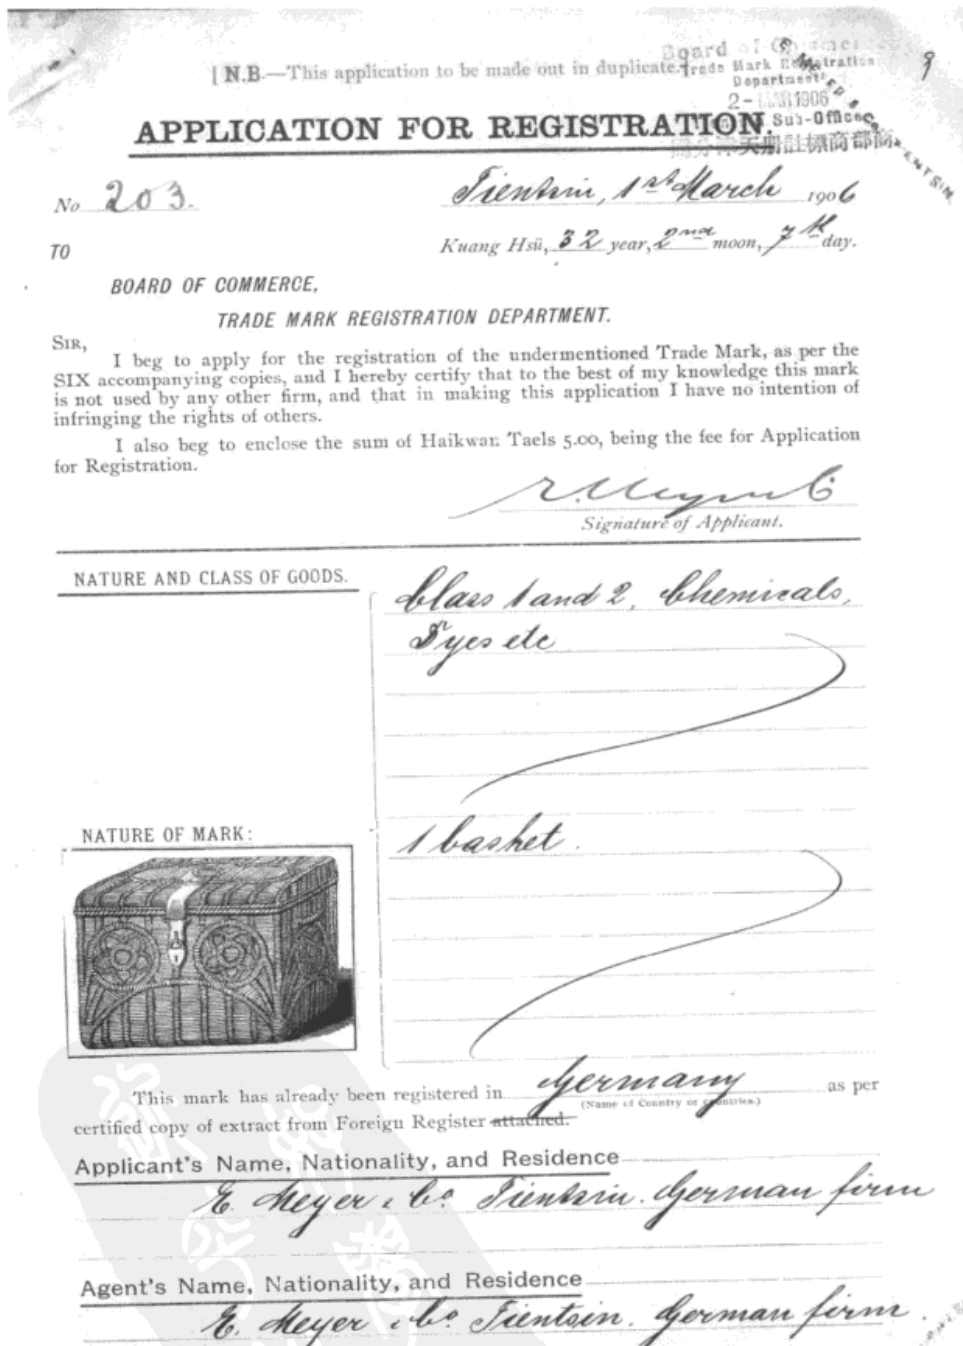 [ N.B.—This application to be made out in duplicate.
Board of Commerce
Trade Mark Registration
Department
2- MAR 1906
Sub-Office
商部商標註册天津分局
9
APPLICATION FOR REGISTRATION.
No 203.
Tientsin, 1st March 1906
Kuang Hsü, 32 year, 2nd moon, 7th day.
TO
BOARD OF COMMERCE,
TRADE MARK REGISTRATION DEPARTMENT.
SIR,
I beg to apply for the registration of the undermentioned Trade Mark, as per the
SIX accompanying copies, and I hereby certify that to the best of my knowledge this mark
is not used by any other firm, and that in making this application I have no intention of
infringing the rights of others.
I also beg to enclose the sum of Haikwan Taels 5.00, being the fee for Application
for Registration.
Signature of Applicant.
NATURE AND CLASS OF GOODS.
Class 1 and 2, Chemicals,
Dyes etc
NATURE OF MARK:
1 basket.
This mark has already been registered in Germany as per
(Name of Country or Countries.)
certified copy of extract from Foreign Register attached.
Applicant's Name, Nationality, and Residence
E. Meyer & Co. Tientsin. German firm
Agent's Name, Nationality, and Residence
E. Meyer & Co. Tientsin. German firm.